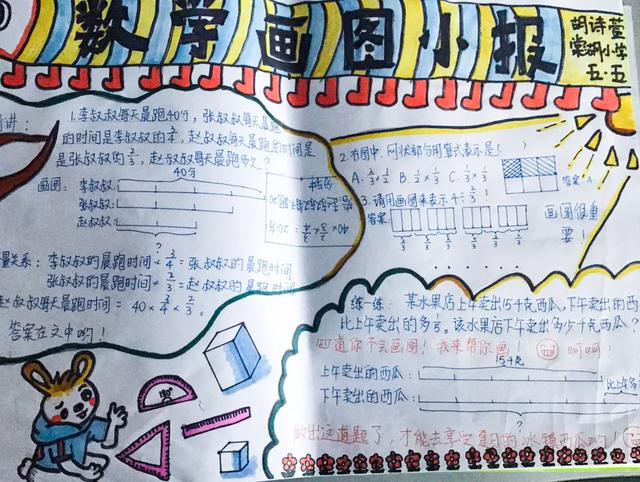 数学画图小报
胡诗萱
棠湖小学
五·五
精讲:
1.李叔叔每天晨跑40分,张叔叔每天晨跑
的时间是李叔叔的3/4,赵叔叔每天晨跑的时间是
是张叔叔的2/3,赵叔叔每天晨跑多久?
画图:
40分
李叔叔:
张叔叔:
赵叔叔:
?
量关系:李叔叔的晨跑时间×3/4=张叔叔的晨跑时间
张叔叔的晨跑时间×2/3=赵叔叔的晨跑时间
赵叔叔每天晨跑时间=40×3/4×2/3。
答案在文中哟!
40×3/4×2/3=20(分)
2.右图中,网状部分用算式表示是( )
答案:A
3.请用画图来表示4÷2/3!
答案:
2/3 2/3 2/3 2/3 2/3 2/3
画图很重
要!
练一练:某水果店上午卖出15千克西瓜,下午卖出的西
比上午卖出的多1/5。该水果店下午卖出多少千克西瓜?
知道你不会画图!我来帮你画! 呵呵!
15千克
上午卖出的西瓜:
比上午多
下午卖出的西瓜:
?
做出这道题了,才能去享受夏日的冰镇西瓜哟!